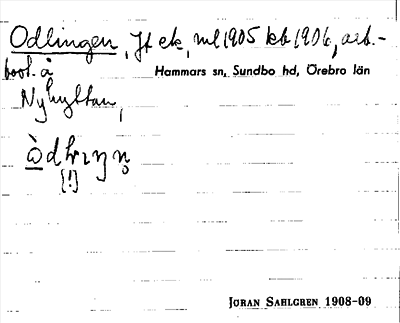 Odlingen, Jt ek, ml 1905 kb 1906, arb.-
bost. å Hammars sn, Sundbo hd, Örebro län
Nyhyttan,
[!]
JÖRAN SAHLGREN 1908-09